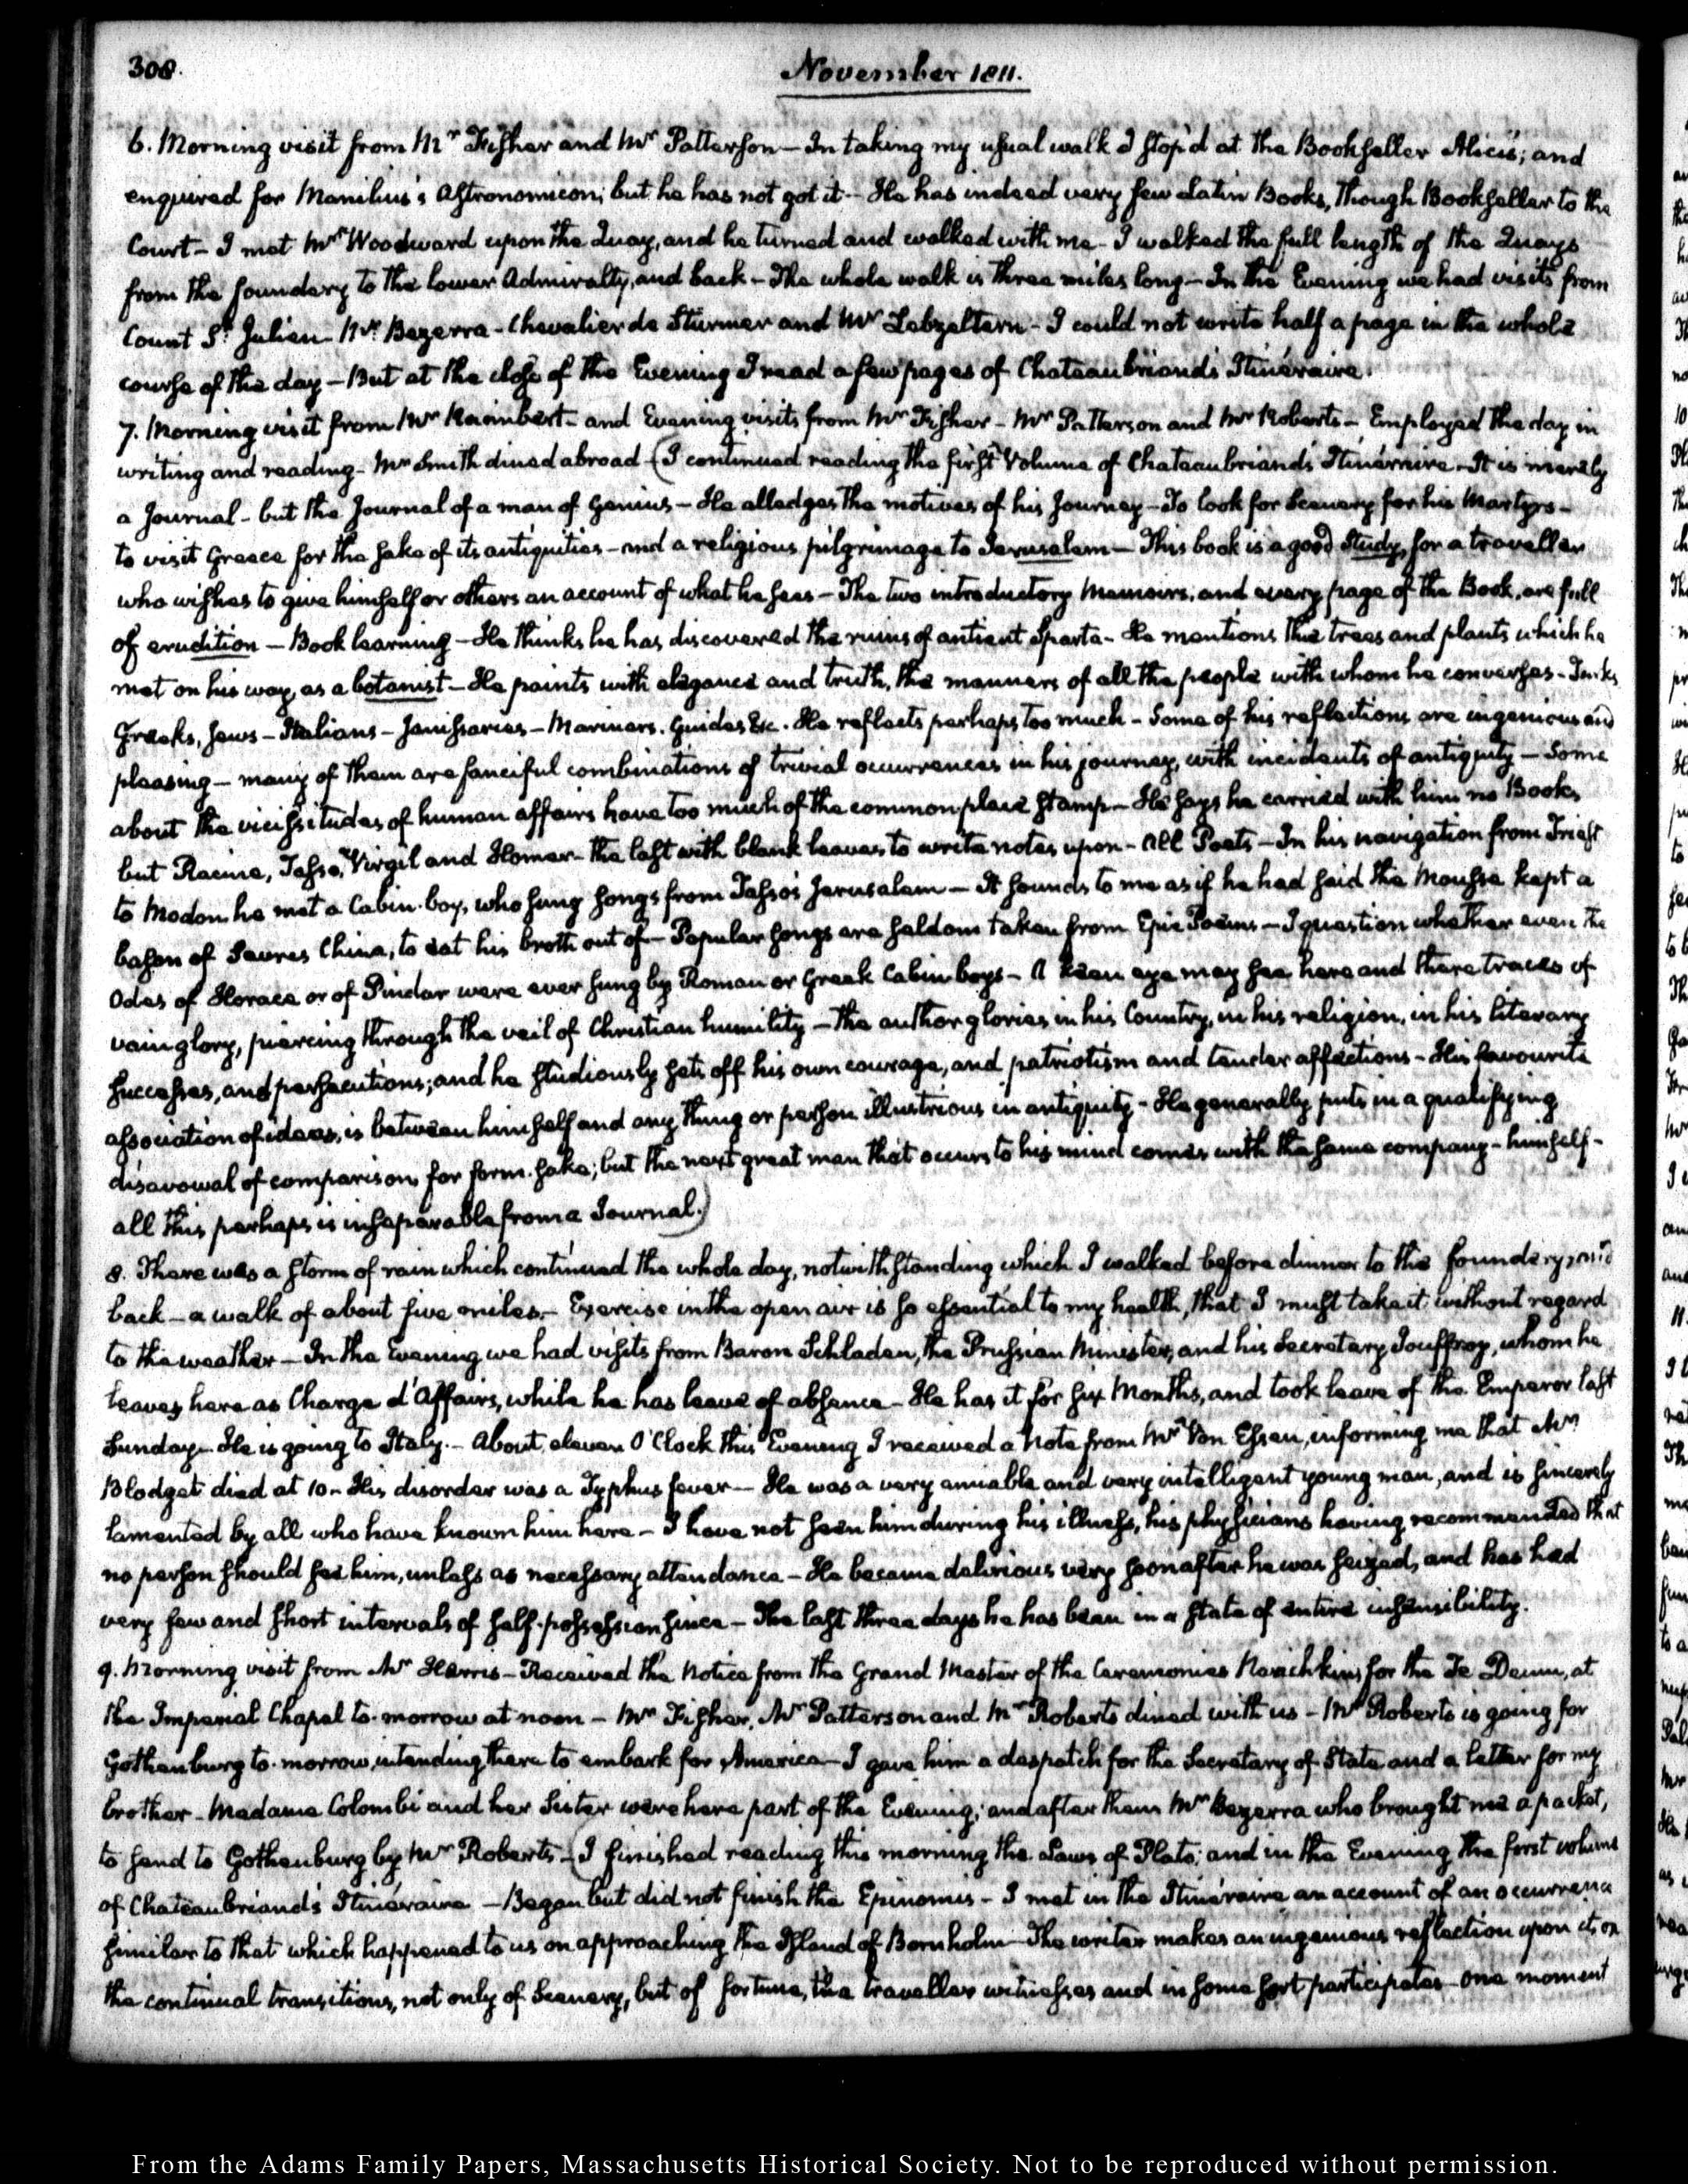 308.
November 1811.
6. Morning visit from Mr Fisher and Mr Patterson — In taking my usual walk I stop'd at the Bookseller Alici's; and
enquired for Manilius's Astronomicon; but he has not got it — He has indeed very few Latin Books, though Bookseller to the
Court — I met Mr Woodward upon the Quay, and he turned and walked with me — I walked the full length of the Quays
from the foundery to the lower Admiralty, and back — The whole walk is three miles long — In the Evening we had visits from
Count St Julien — Mr Bezerra — Chevalier de Sturmer and Mr Lebzeltern — I could not write half a page in the whole
course of the day — But at the close of the Evening I read a few pages of Chateaubriand's Itinéraire.
7. Morning visit from Mr Raimbert — and Evening visits from Mr Fisher — Mr Patterson and Mr Roberts — Employed the day in
writing and reading — Mr Smith dined abroad (I continued reading the first Volume of Chateaubriand's Itinéraire — It is merely
a Journal — but the Journal of a man of Genius — He alledges the motives of his Journey — To look for Scenery for his Martyrs —
to visit Greece for the sake of its antiquities — and a religious pilgrimage to Jerusalem — This book is a good Study, for a traveller
who wishes to give himself or others an account of what he sees — The two introductory Memoirs, and every page of the Book, are full
of erudition — Book learning — He thinks he has discovered the ruins of antient Sparta — He mentions the trees and plants which he
met on his way, as a botanist — He paints with elegance and truth, the manners of all the people with whom he converses — Turks
Greeks, Jews — Italians — Janissaries — Mariners. Guides &c. He reflects perhaps too much — Some of his reflections are ingenious and
pleasing — many of them are fanciful combinations of trivial occurrences in his journey, with incidents of antiquity — Some
about the vicissitudes of human affairs have too much of the common place stamp — He says he carried with him no Books
but Racine, Tasso, Virgil and Homer — the last with blank leaves to write notes upon — All Poets — In his navigation from Triest
to Modon he met a Cabin-boy, who sung songs from Tasso's Jerusalem — It sounds to me as if he had said the Mousse kept a
bason of Seves China, to eat his broth out of — Popular songs are seldom taken from Epic Poems — I question whether even the
Odes of Horace or of Pindar were ever sung by Roman or Greek Cabin boys — A keen eye may see here and there traces of
vain glory, piercing through the veil of Christian humility — The author glories in his Country, in his religion, in his literary
successes, and persecutions; and he studiously sets off his own courage, and patriotism and tender affections — His favourite
association of ideas, is between himself and any thing or person illustrious in antiquity — He generally puts in a qualifying
disavowal of comparison, for form-sake; but the next great man that occurs to his mind comes with the same company — himself —
all this perhaps is inseparable from a Journal.)
8. There was a storm of rain which continued the whole day, notwithstanding which I walked before dinner to the foundery, and
back — a walk of about five miles — Exercise in the open air is so essential to my health, that I must take it without regard
to the weather — In the Evening we had visits from Baron Schladen, the Prussian Minister, and his Secretary Jouffroy, whom he
leaves here as Charge d'Affairs, while he has leave of absence — He has it for six Months, and took leave of the Emperor last
Sunday — He is going to Italy. — About eleven O'Clock this Evening I received a Note from Mr Von Essen, informing me that Mr
Blodget died at 10 — His disorder was a Typhus fever — He was a very amiable and very intelligent young man, and is sincerely
lamented by all who have known him here — I have not seen him during his illness, his physicians having recommended that
no person should see him, unless as necessary attendance — He became delirious very soon after he was seized, and has had
very few and short intervals of self-possession since — The last three days he has been in a state of entire insensibility.
9. Morning visit from Mr Harris — Received the Notice from the Grand Master of the Ceremonies Narishkin, for the Te Deum, at
the Imperial Chapel to-morrow at noon — Mr Fisher, Mr Patterson and Mr Roberts dined with us — Mr Roberts is going for
Gothenburg to-morrow, intending there to embark for America — I gave him a despatch for the Secretary of State and a letter for my
brother — Madame Colombi and her Sister were here part of the Evening; and after them Mr Bezerra who brought me a packet,
to send to Gothenburg by Mr Roberts — (I finished reading this morning the Laws of Plato; and in the Evening the first volume
of Chateaubriand's Itinéraire — Began but did not finish the Epinomis — I met in the Itinéraire an account of an occurrence
similar to that which happened to us on approaching the Island of Bornholm — The writer makes an ingenious reflection upon it, on
the continual transitions, not only of Scenery, but of fortune, the traveller witnesses and in some sort participates — One moment
From the Adams Family Papers, Massachusetts Historical Society. Not to be reproduced without permission.